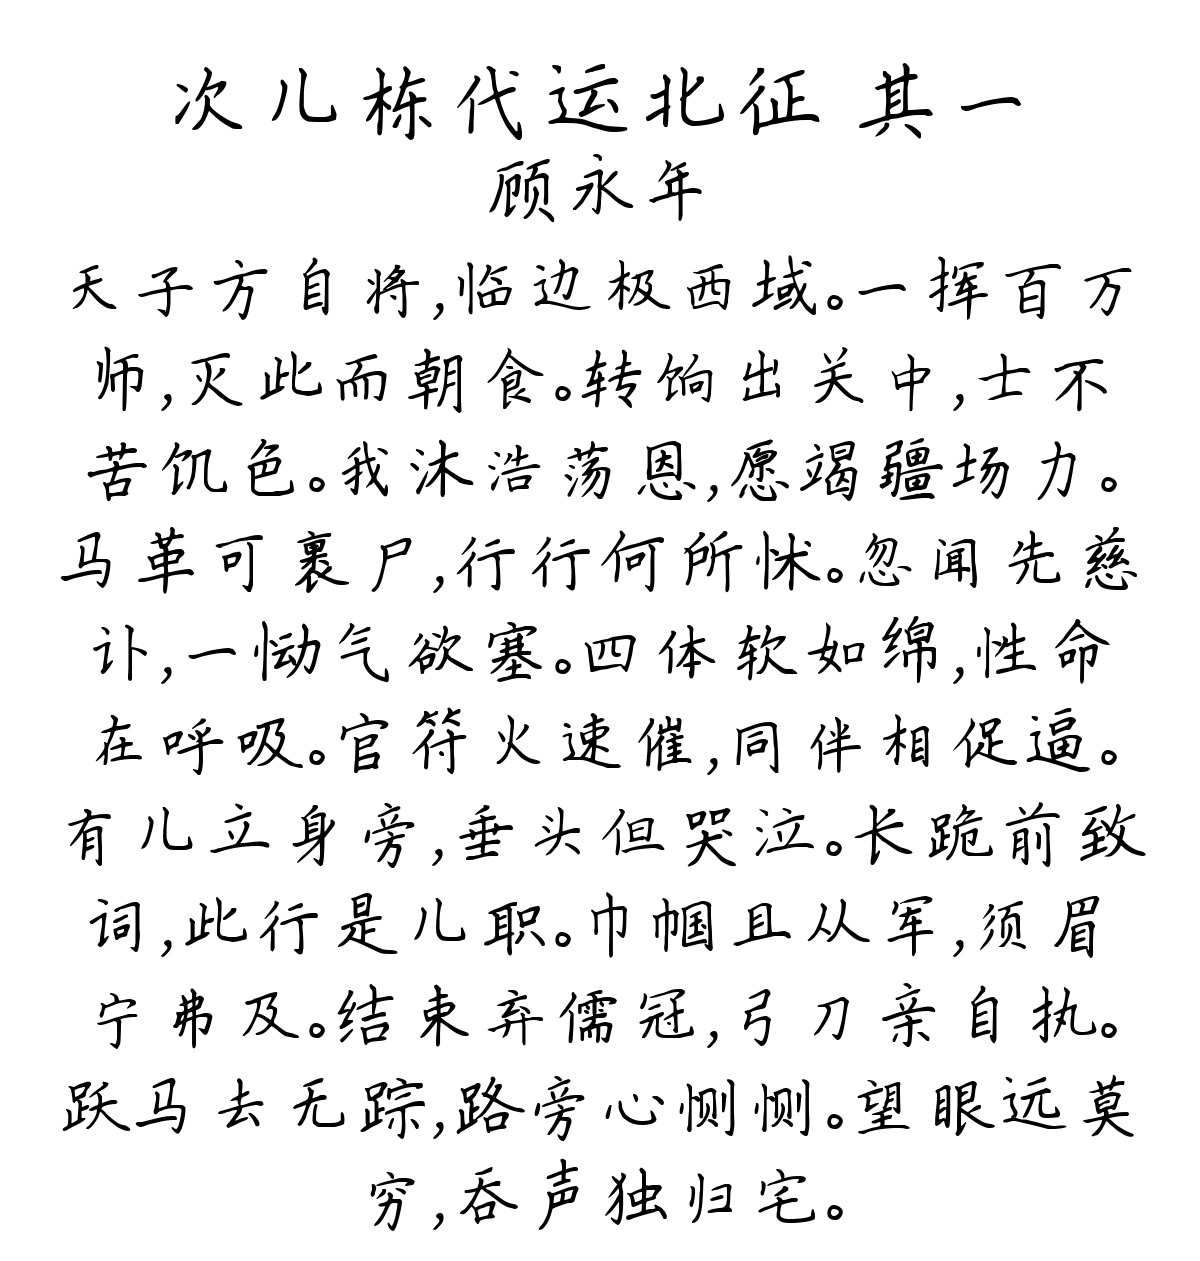 次儿栋代运北征 其一
顾永年
天子方自将,临边极西域。一挥百万
师,灭此而朝食。转饷出关中,士不
苦饥色。我沐浩荡恩,愿竭疆场力。
马革可裹尸,行行何所怵。忽闻先慈
讣,一恸气欲塞。四体软如绵,性命
在呼吸。官符火速催,同伴相促逼。
有儿立身旁,垂头但哭泣。长跪前致
词,此行是儿职。巾帼且从军,须眉
宁弗及。结束弃儒冠,弓刀亲自执。
跃马去无踪,路旁心恻恻。望眼远莫
穷,吞声独归宅。